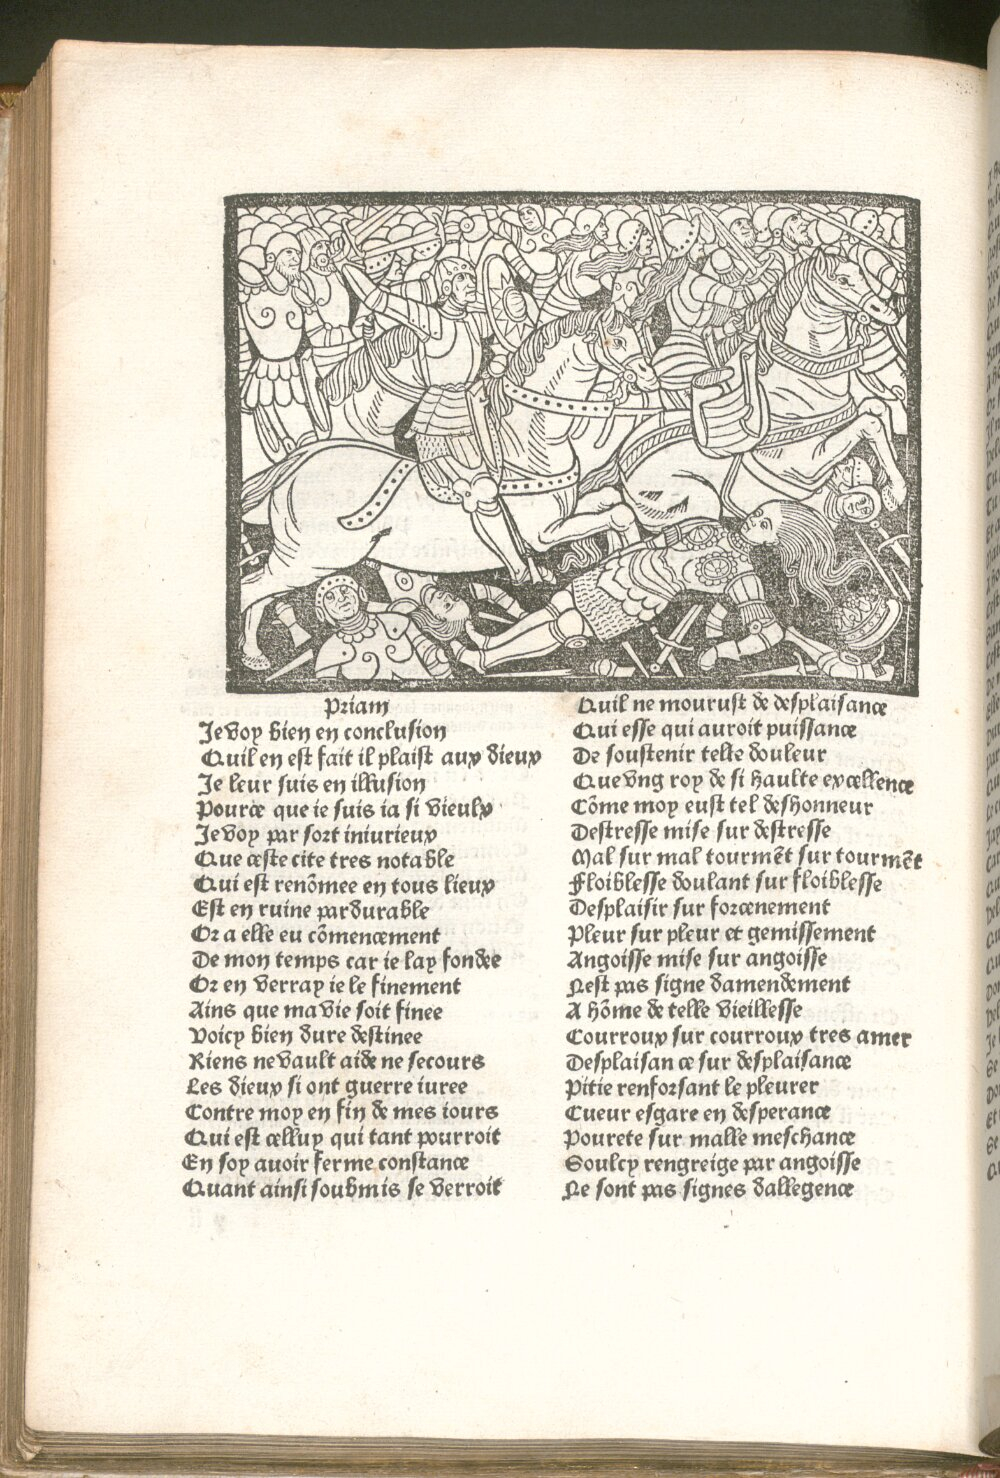 Priam
Je voy bien en conclusion
Quil en est fait il plaist aux dieux
Je leur suis en illusion
Pource que ie suis ia si vieulx
Je voy par sort iniurieux
Que ceste cite tres notable
Qui est renõmee en tous lieux
Est en ruine pardurable
Or a elle eu cõmencement
De mon temps car ie lay fondee
Or en verray ie le finement
Ains que ma vie soit finee
Voicy bien dure destinee
Riens ne vault aide ne secours
Les dieux si ont guerre iuree
Contre moy en fin de mes iours
Qui est celluy qui tant pourroit
En soy auoir ferme constance
Quant ainsi soubmis se verroit
Quil ne mourust de desplaisance
Qui esse qui auroit puissance
De soustenir telle douleur
Que vng roy de si haulte excellence
Cõme moy eust tel deshonneur
Destresse mise sur destresse
Mal sur mal tourmẽt sur tourmẽt
Floiblesse doulant sur floiblesse
Desplaisir sur forcenement
Pleur sur pleur et gemissement
Angoisse mise sur angoisse
Nest pas signe damendement
A hõme de telle vieillesse
Courroux sur courroux tres amer
Desplaisance sur desplaisance
Pitie renforsant le pleurer
Cueur esgare en desperance
Pourete sur malle meschance
Soulcy rengreige par angoisse
Ne sont pas signes dallegence